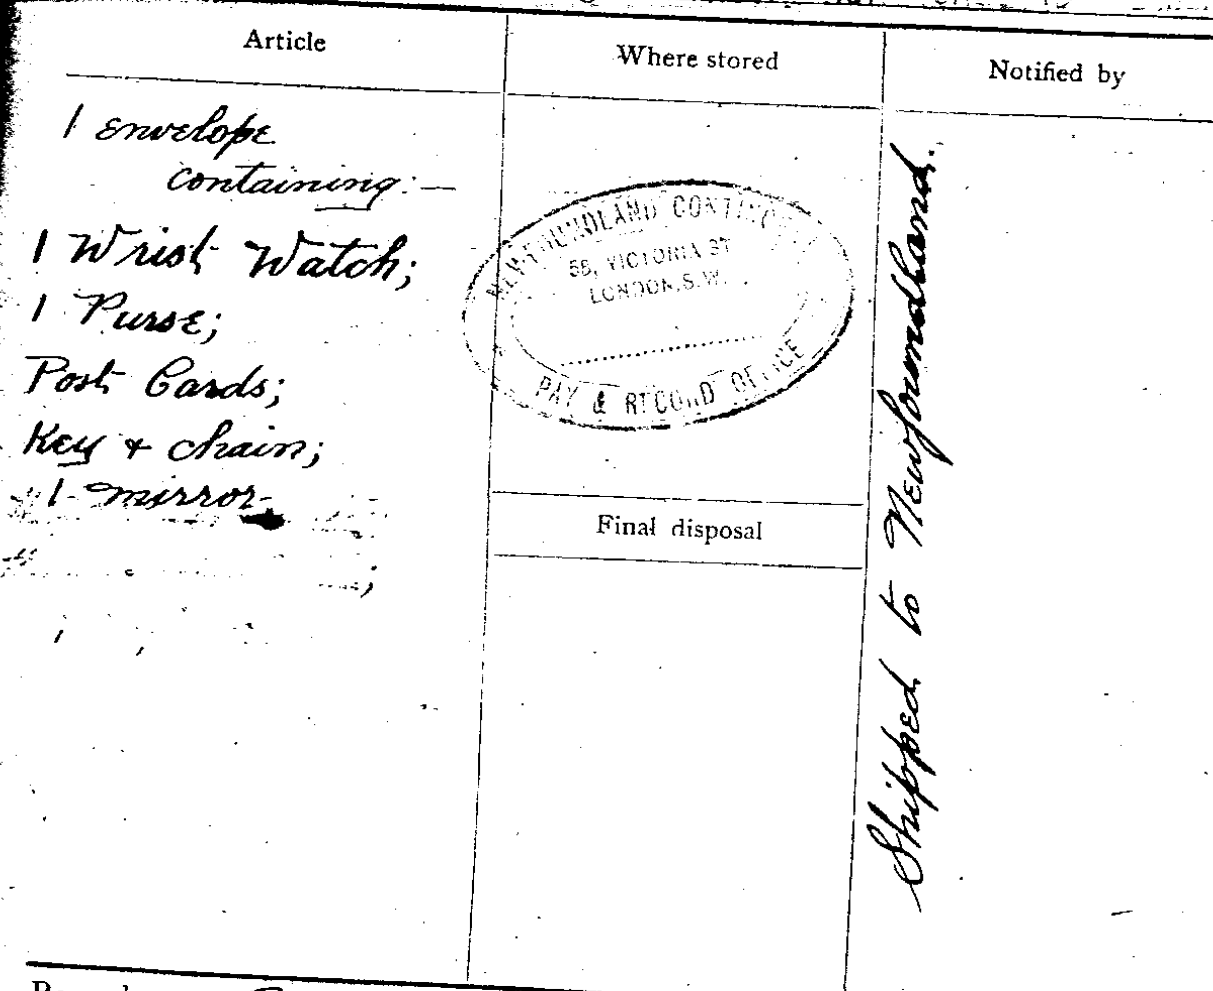 Article
Where stored
Notified by
1 envelope
containing:—
1 Wrist Watch;
1 Purse;
Post Cards;
Key & chain;
1 mirror
NEWFOUNDLAND CONTINGENT
58, VICTORIA ST
LONDON, S.W.
PAY & RECORD OFFICE
Final disposal
Shipped to Newfoundland.